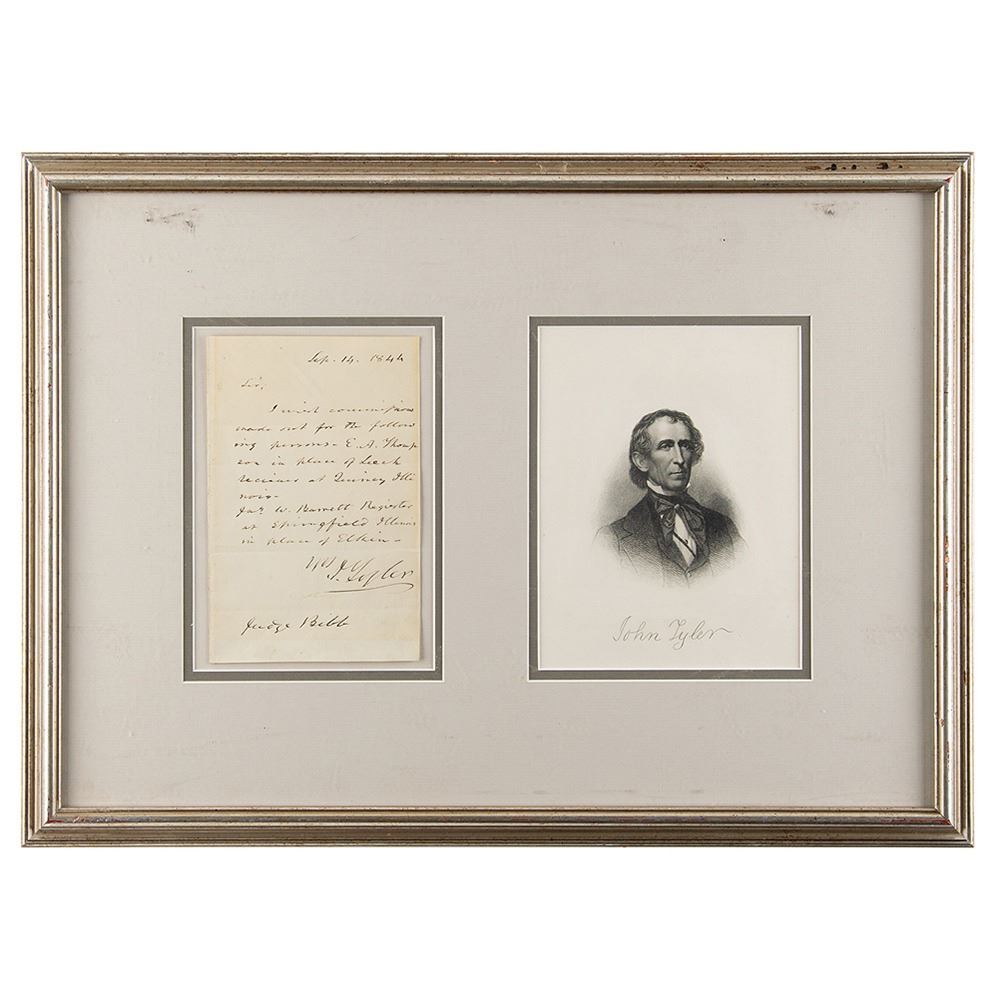 Sep. 14. 1844
Sir,
I wish commissions
made out for the follow
ing persons - E. A. Thomp
son in place of Leech
receiver at Quincy Illi
nois -
Jas. W. Barrett Register
at Springfield Illinois
in place of Elkin -
J. Tyler
Judge Bibb
John Tyler